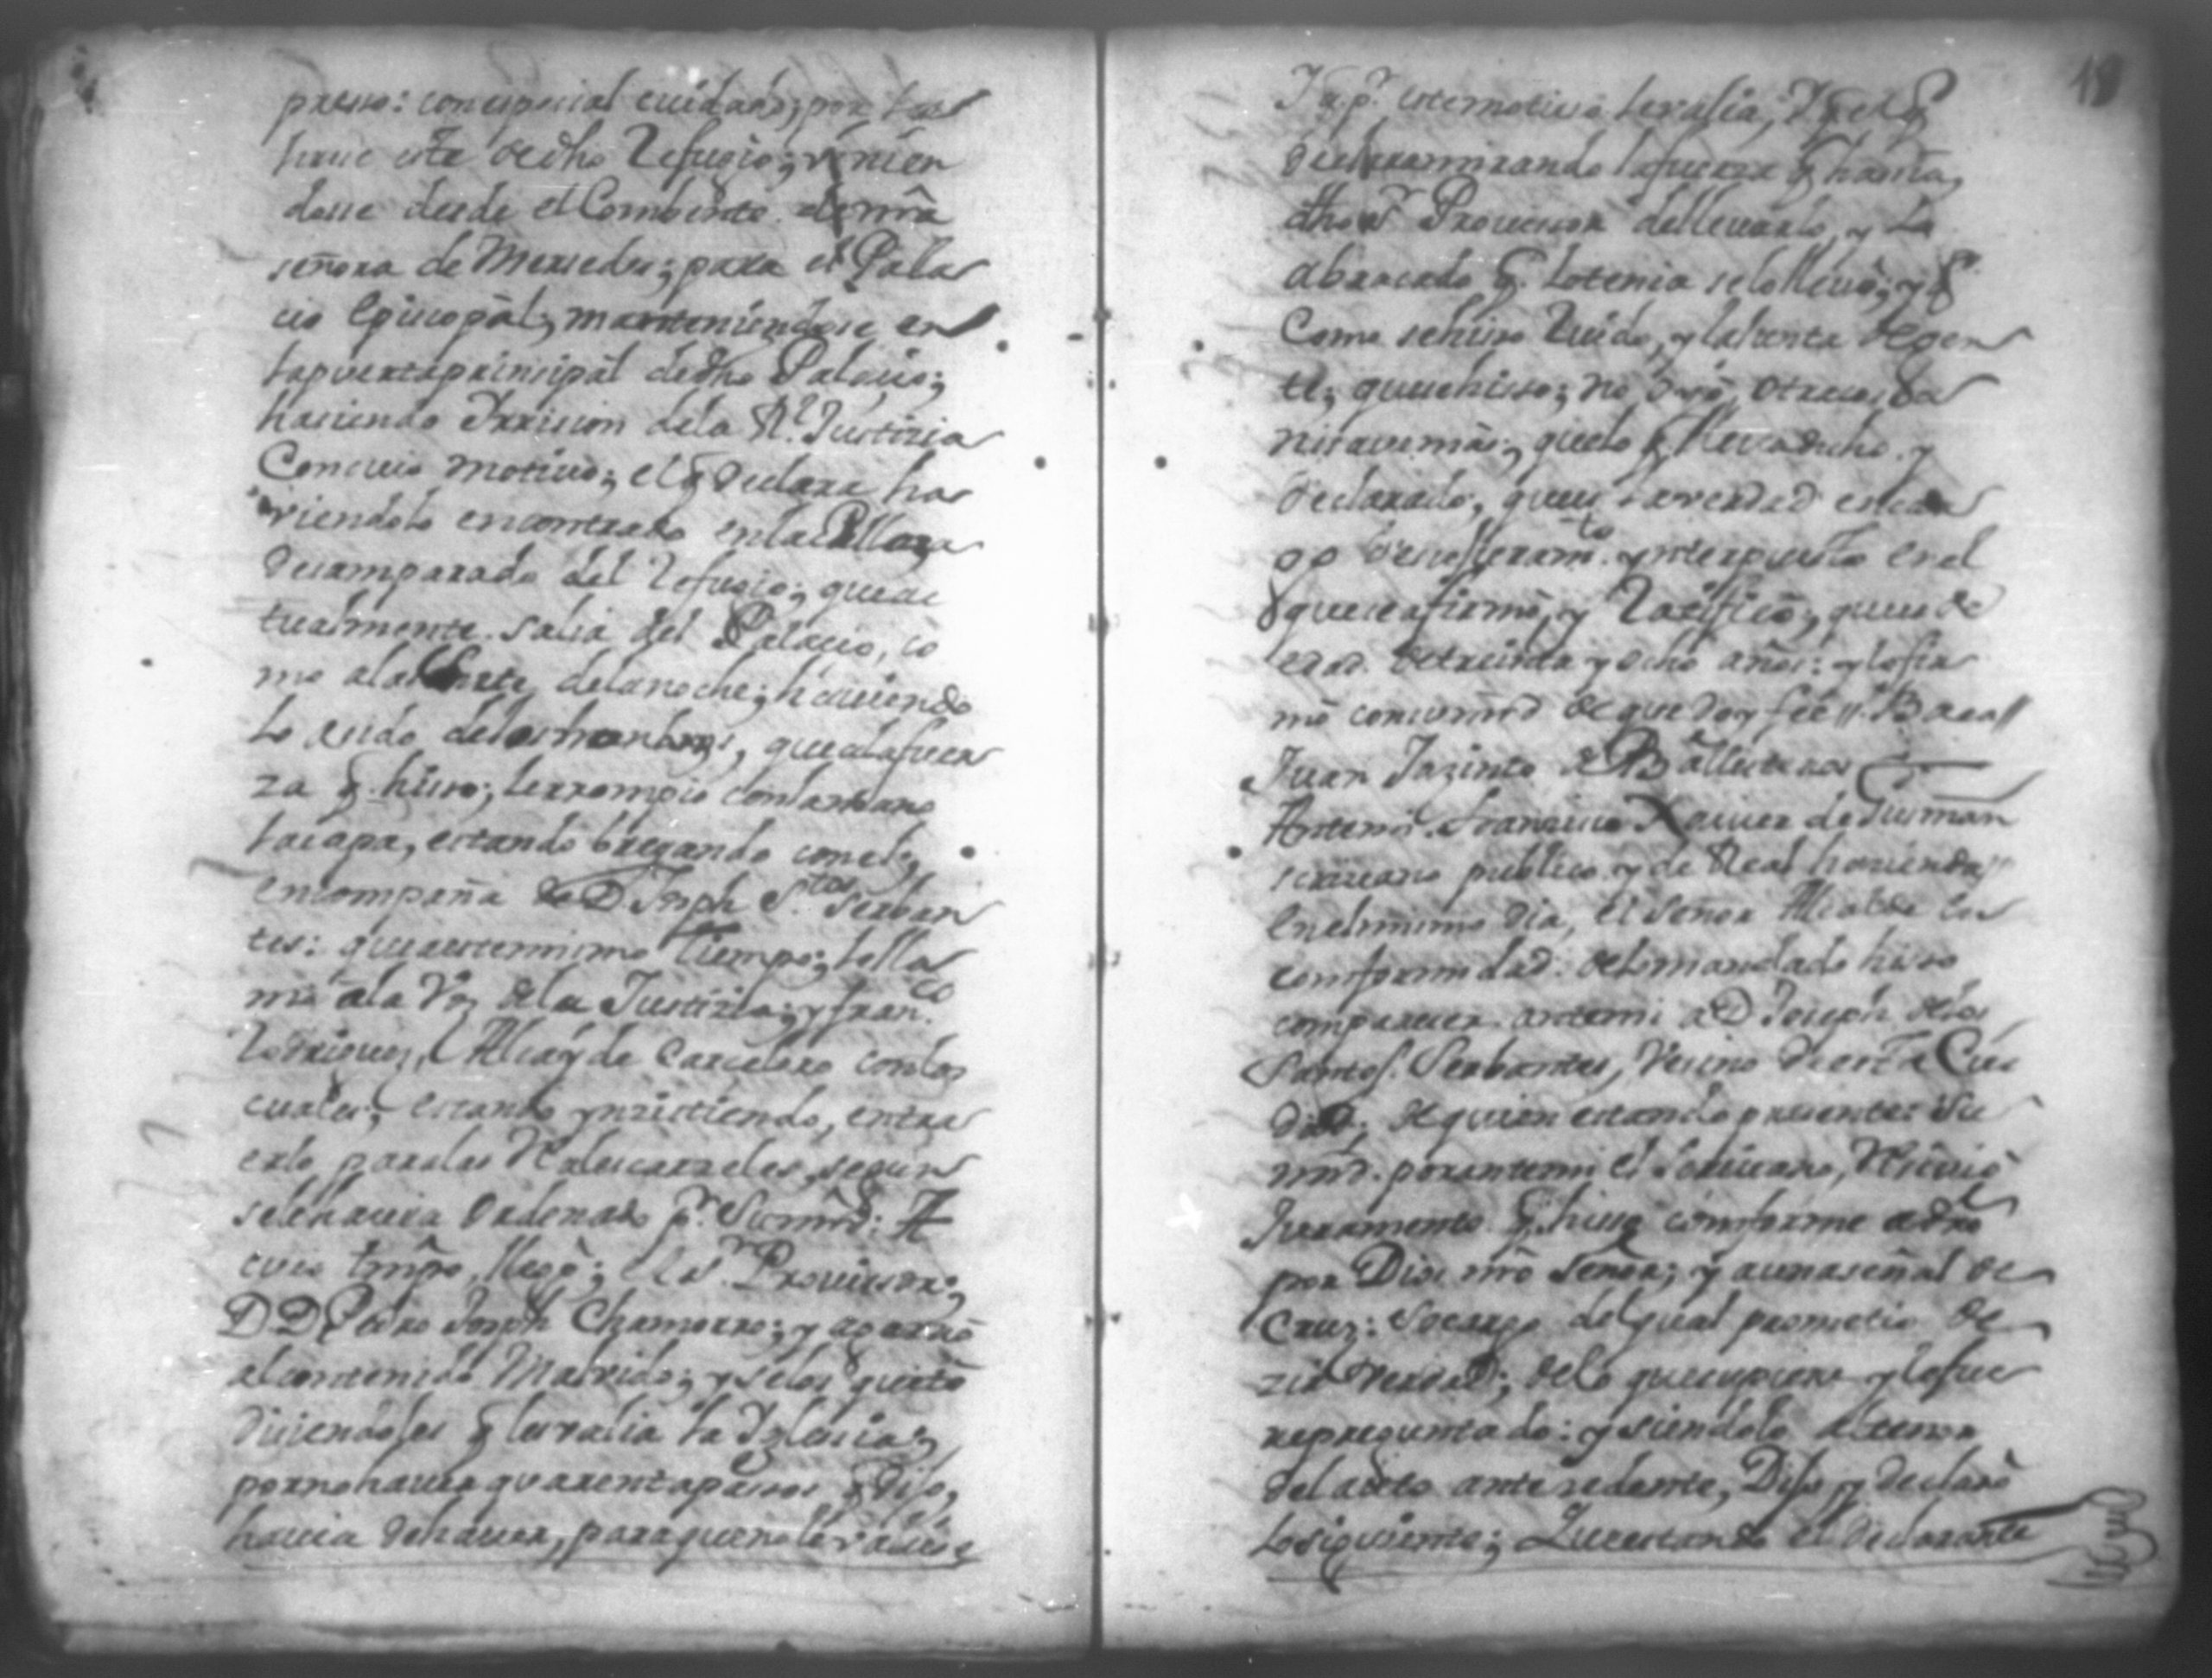 presso: con especial cuidado; por
hauer este de dho Refugio; vinien
dose desde el Combento de nrã
señora de Mersedes; para el Pala
cio Episcopal; manteniendose en
la puerta principal de dho Palacio;
hasiendo Irricion de la Rl. Justizia
Con cuio motivo; el q̃ declara ha
viendolo encontrado en la Pllaza
decamparado del Refugio; que ac
tualmente salia del Palacio, co
mo a las siete de la noche; haviendo
lo asido de los hombros, que a la fuer
za q̃ hiso; le rrompio
la capa, estando bregando con el;
en compaña de D Joseph S.tos Serban
tes: que a este mismo tiempo; lo lla
mò a la Vos de la Justizia; y Fran.co
Rodrigues, Alcayde Carcelero con los
cuales; estando ynsistiendo, entra
erlo para las Rs carzeles, segun
se le hauia Ordenado pr. Su mrd: A
cuio tmpo, llegò; el Sr. Provissor;
D D Pedro Joseph Chamorro; y agarrò
al contenido Malrido; y se los quitò
diciendoles q̃ les valia la Yglesia;
por no hauer quarenta passos q̃ dijo,
hauia de hauer, para que no le valiese
18
Y q̃ pr. este motivo le valia; Y q̃ el q̃
declara mirando la fuerza q̃ hacia,
dho Sr Provissor de llevarlo, y lo
abrazado q̃. lo tenia se lo llevò; y q̃
Como se hiso Ruido, y la Junta de gen
te; que se hisso; no oyò, otra cosa
ni save mas; que lo q̃ lleva dicho y
declarado, que es la verdad en car
go de su Juramto. ynterpuesto en el
que se afirmò, y Ratificò; que es de
edad de treinta y ocho años: y lo fir
mò con su mrd de que doy fèe // Baca //
Juan Jazinto de Ballestero
Antemi Francisco Xavier de Gusman
scriuano publico y de Real hazienda //
En el mismo dia, el Señor Alcalde en
comformidad de lo mandado hiso
comparecer antemi a D Joseph de los
Santos Serbantes, Vesino de esta Ciu
dad. de quien estando presente: Su
mrd. por antemi el Scriuano, Reciuiò
Juramento q̃ hisso comforme a dro
por Dios nrõ Señor; y a una señal de
Cruz: So cargo del qual prometio de
zir verdad; de lo que supiere y le fue
repreguntado: y siendolo al tenor
del auto antesedente, Dijo y declarò
lo siguiente; Que estando el declarante